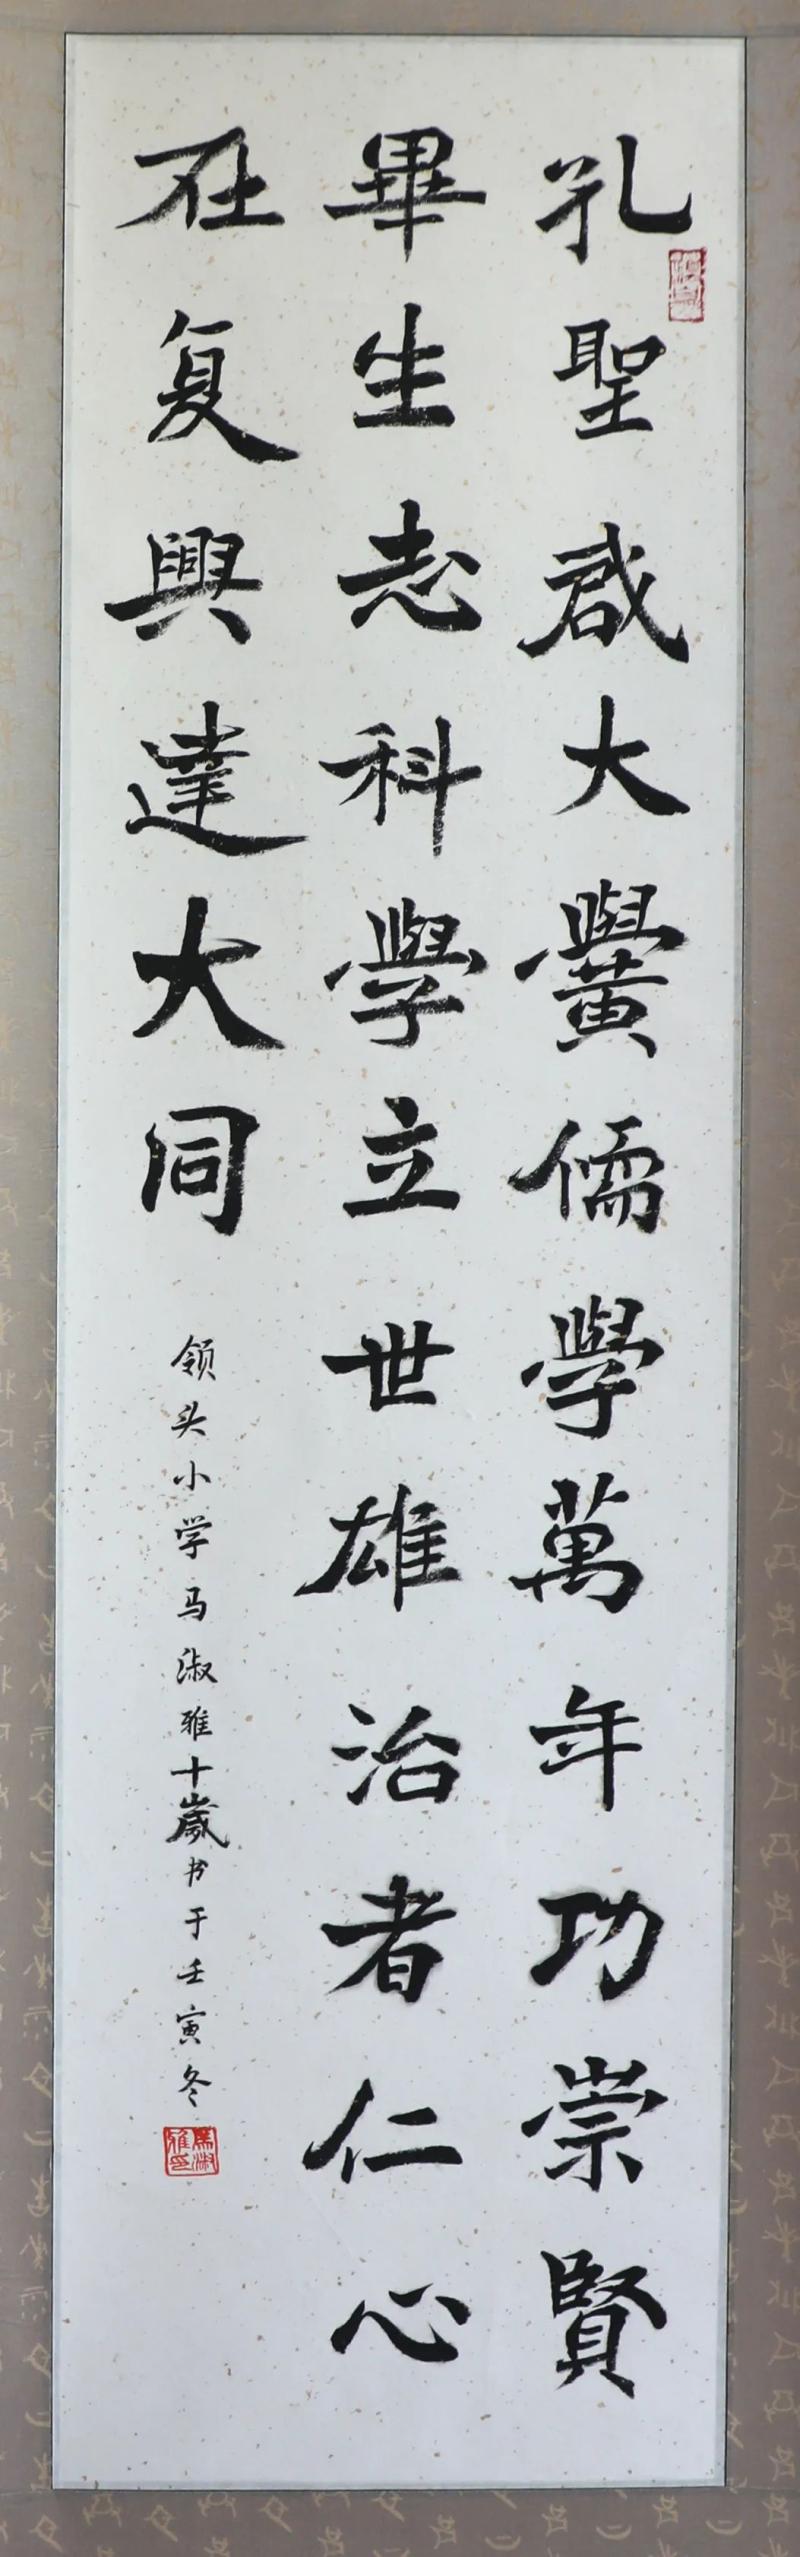 孔聖啟大黌儒學萬年功崇賢
畢生志科學立世雄治者仁心
在复興達大同
领头小学马淑雅十歲书于壬寅冬
馬淑雅印